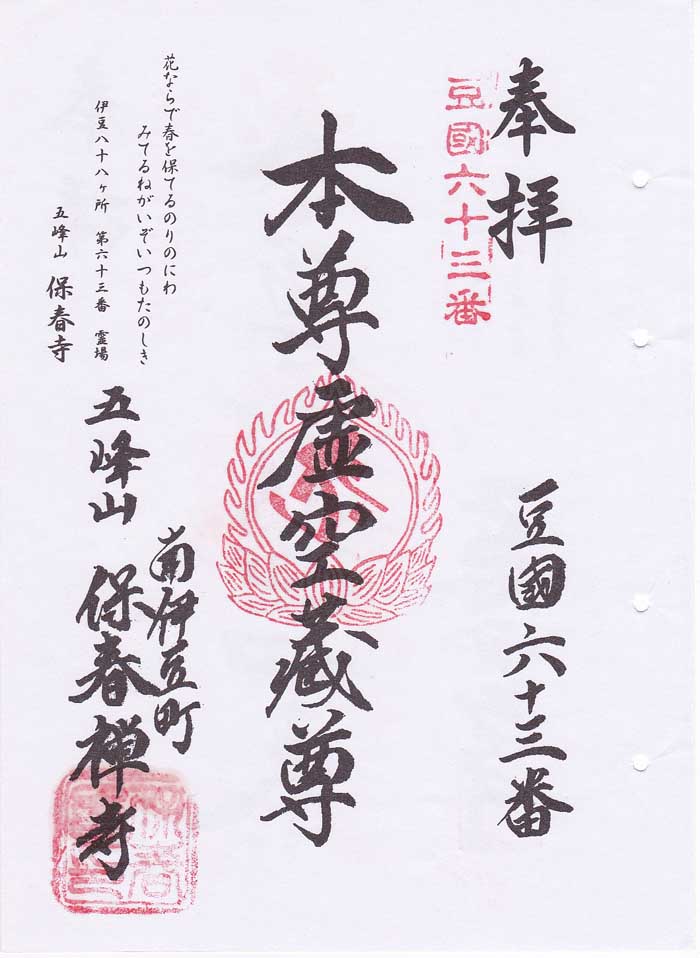 奉拝
豆國六十三番
豆國六十三番
本尊虚空蔵尊
南伊豆町
五峰山 保春禅寺
花ならで春を保てるのりのにわ
みてるねがいぞいつもたのしき
伊豆八十八ヶ所 第六十三番 霊場
五峰山 保春寺